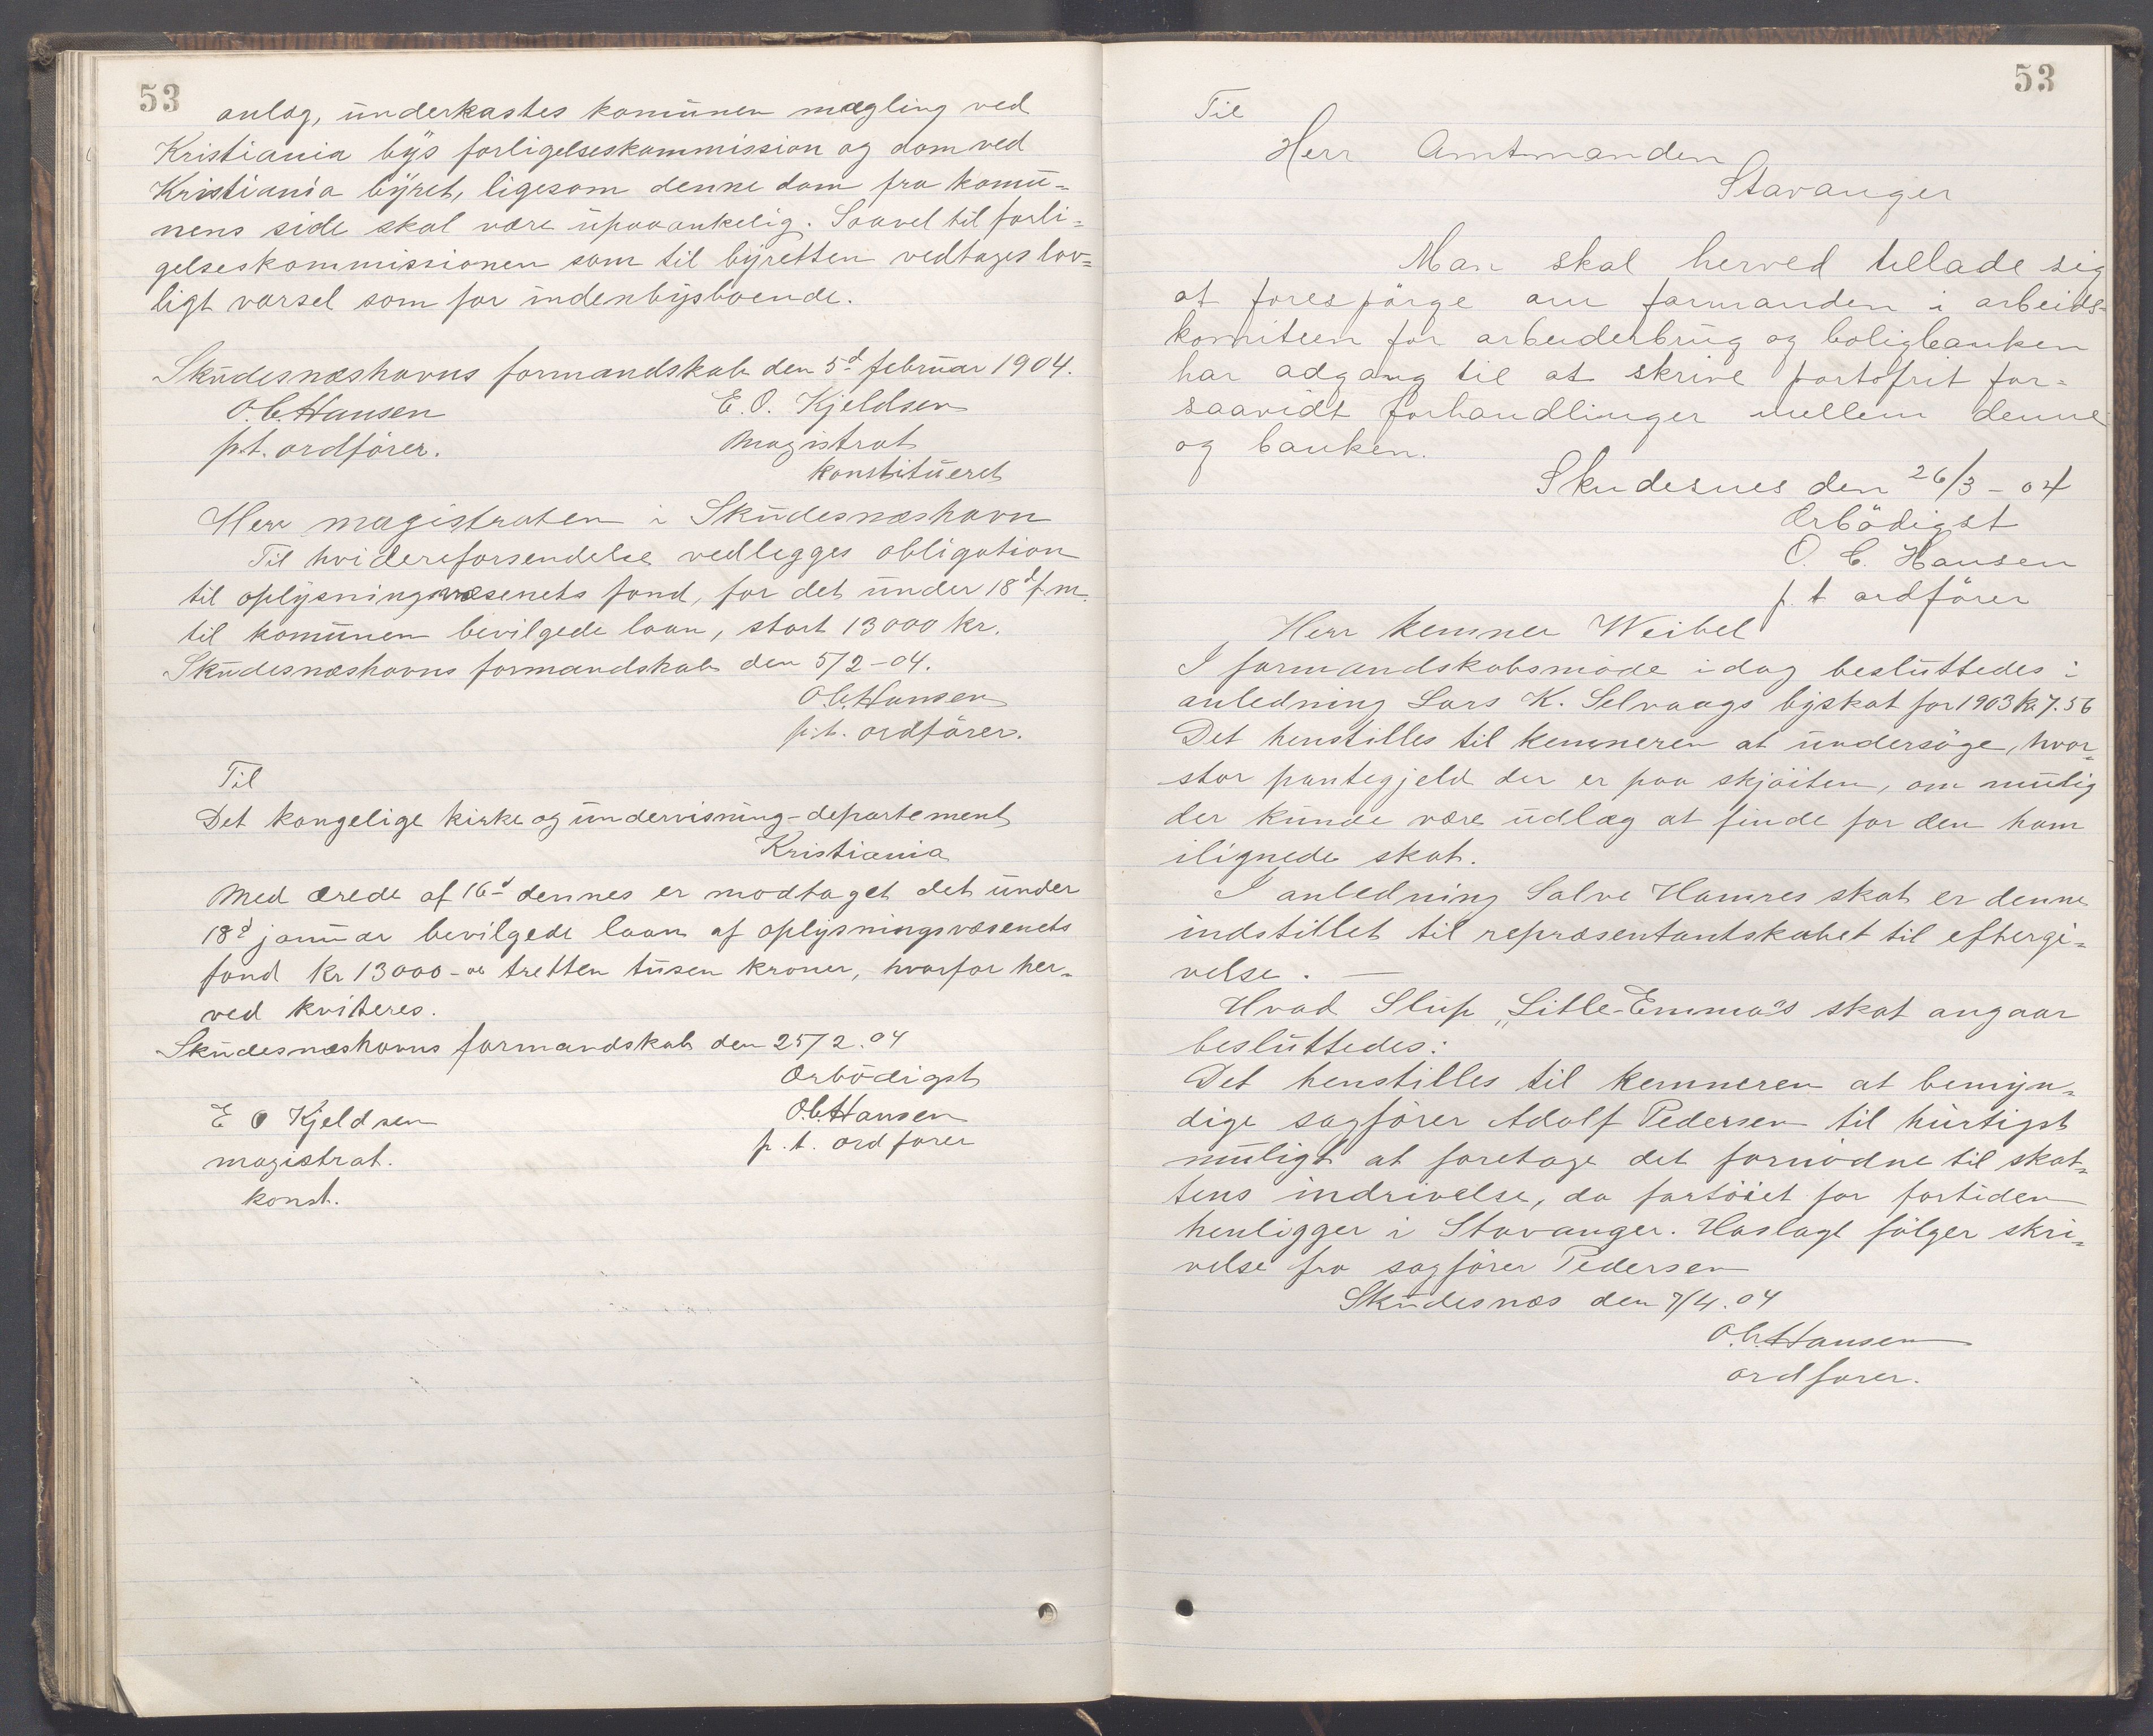 53
anlæg, underkastes komunen mægling ved
Kristiania bys forligelseskommission og dom ved
Kristiania byret, ligesom denne dom fra komu-
nens side skal være upaaankelig. Saavel til forli-
gelseskommissionen som til byretten vedtages lov-
ligt varsel som for indenbysboende.
Skudesnæshavns formandskab den 5d februar 1904.
O.C. Hansen
p.t. ordförer.
E. O. Kjeldsen
Magistrat
konstitueret
Herr magistraten i Skudesnæshavn
Til hvidereforsendelse vedlegges obligation
til oplysningsvæsenets fond, for det under 18d f.m.
til komunen bevilgede laan, stort 13000 kr.
Skudesnæshavns formandskab den 5/2-04.
O.C. Hansen
p.t. ordförer.
Til
Det kongelige kirke og undervisning-departement
Kristiania
Med ærede af 16d dennes er modtaget det under
18d januar bevilgede laan af oplysningsvæsenets
fond kr 13000 - tretten tusen kroner, hvorfor her-
ved kviteres.
Skudesnæshavns formandskab den 25/2.04
Ærbödigst
E O Kjeldsen
magistrat.
konst.
O.C. Hansen
p.t. ordförer
53
Til
Herr Amtmanden
Stavanger
Man skal herved tillade sig
at forespörge om formanden i arbeids-
komiteen for arbeiderbrug og boligbanken
har adgang til at skrive portofrit for-
saavidt forhandlinger mellem denne
og banken.
Skudesnes den 26/3-04
Ærbödigst
O. C. Hansen
p. t ordförer
Herr kemner Weibel
I formandskabsmöde idag besluttedes i
anledning Lars K. Selvaags byskat for 1903 kr. 7.56
Det henstilles til kemneren at undersöge, hvor-
stor pantegjeld der er paa skjöiten, om mulig
der kunde være udlæg at finde for den ham
ilignede skat.
I anledning Salve Hamres skat er denne
indstillet til repræsentantskabet til eftergi-
velse. —
Hvad Slup „Litle-Emma"s skat angaar
besluttedes:
Det henstilles til kemneren at bemyn-
dige sagförer Adolf Pedersen til hurtigst
muligt at foretage det fornödne til skat-
tens indrivelse, da fartöiet for fortiden
henligger i Stavanger. Haslagt fölger skri-
velse fra sagförer Pedersen
Skudesnæs den 7/4.04
O.C. Hansen
ordförer.